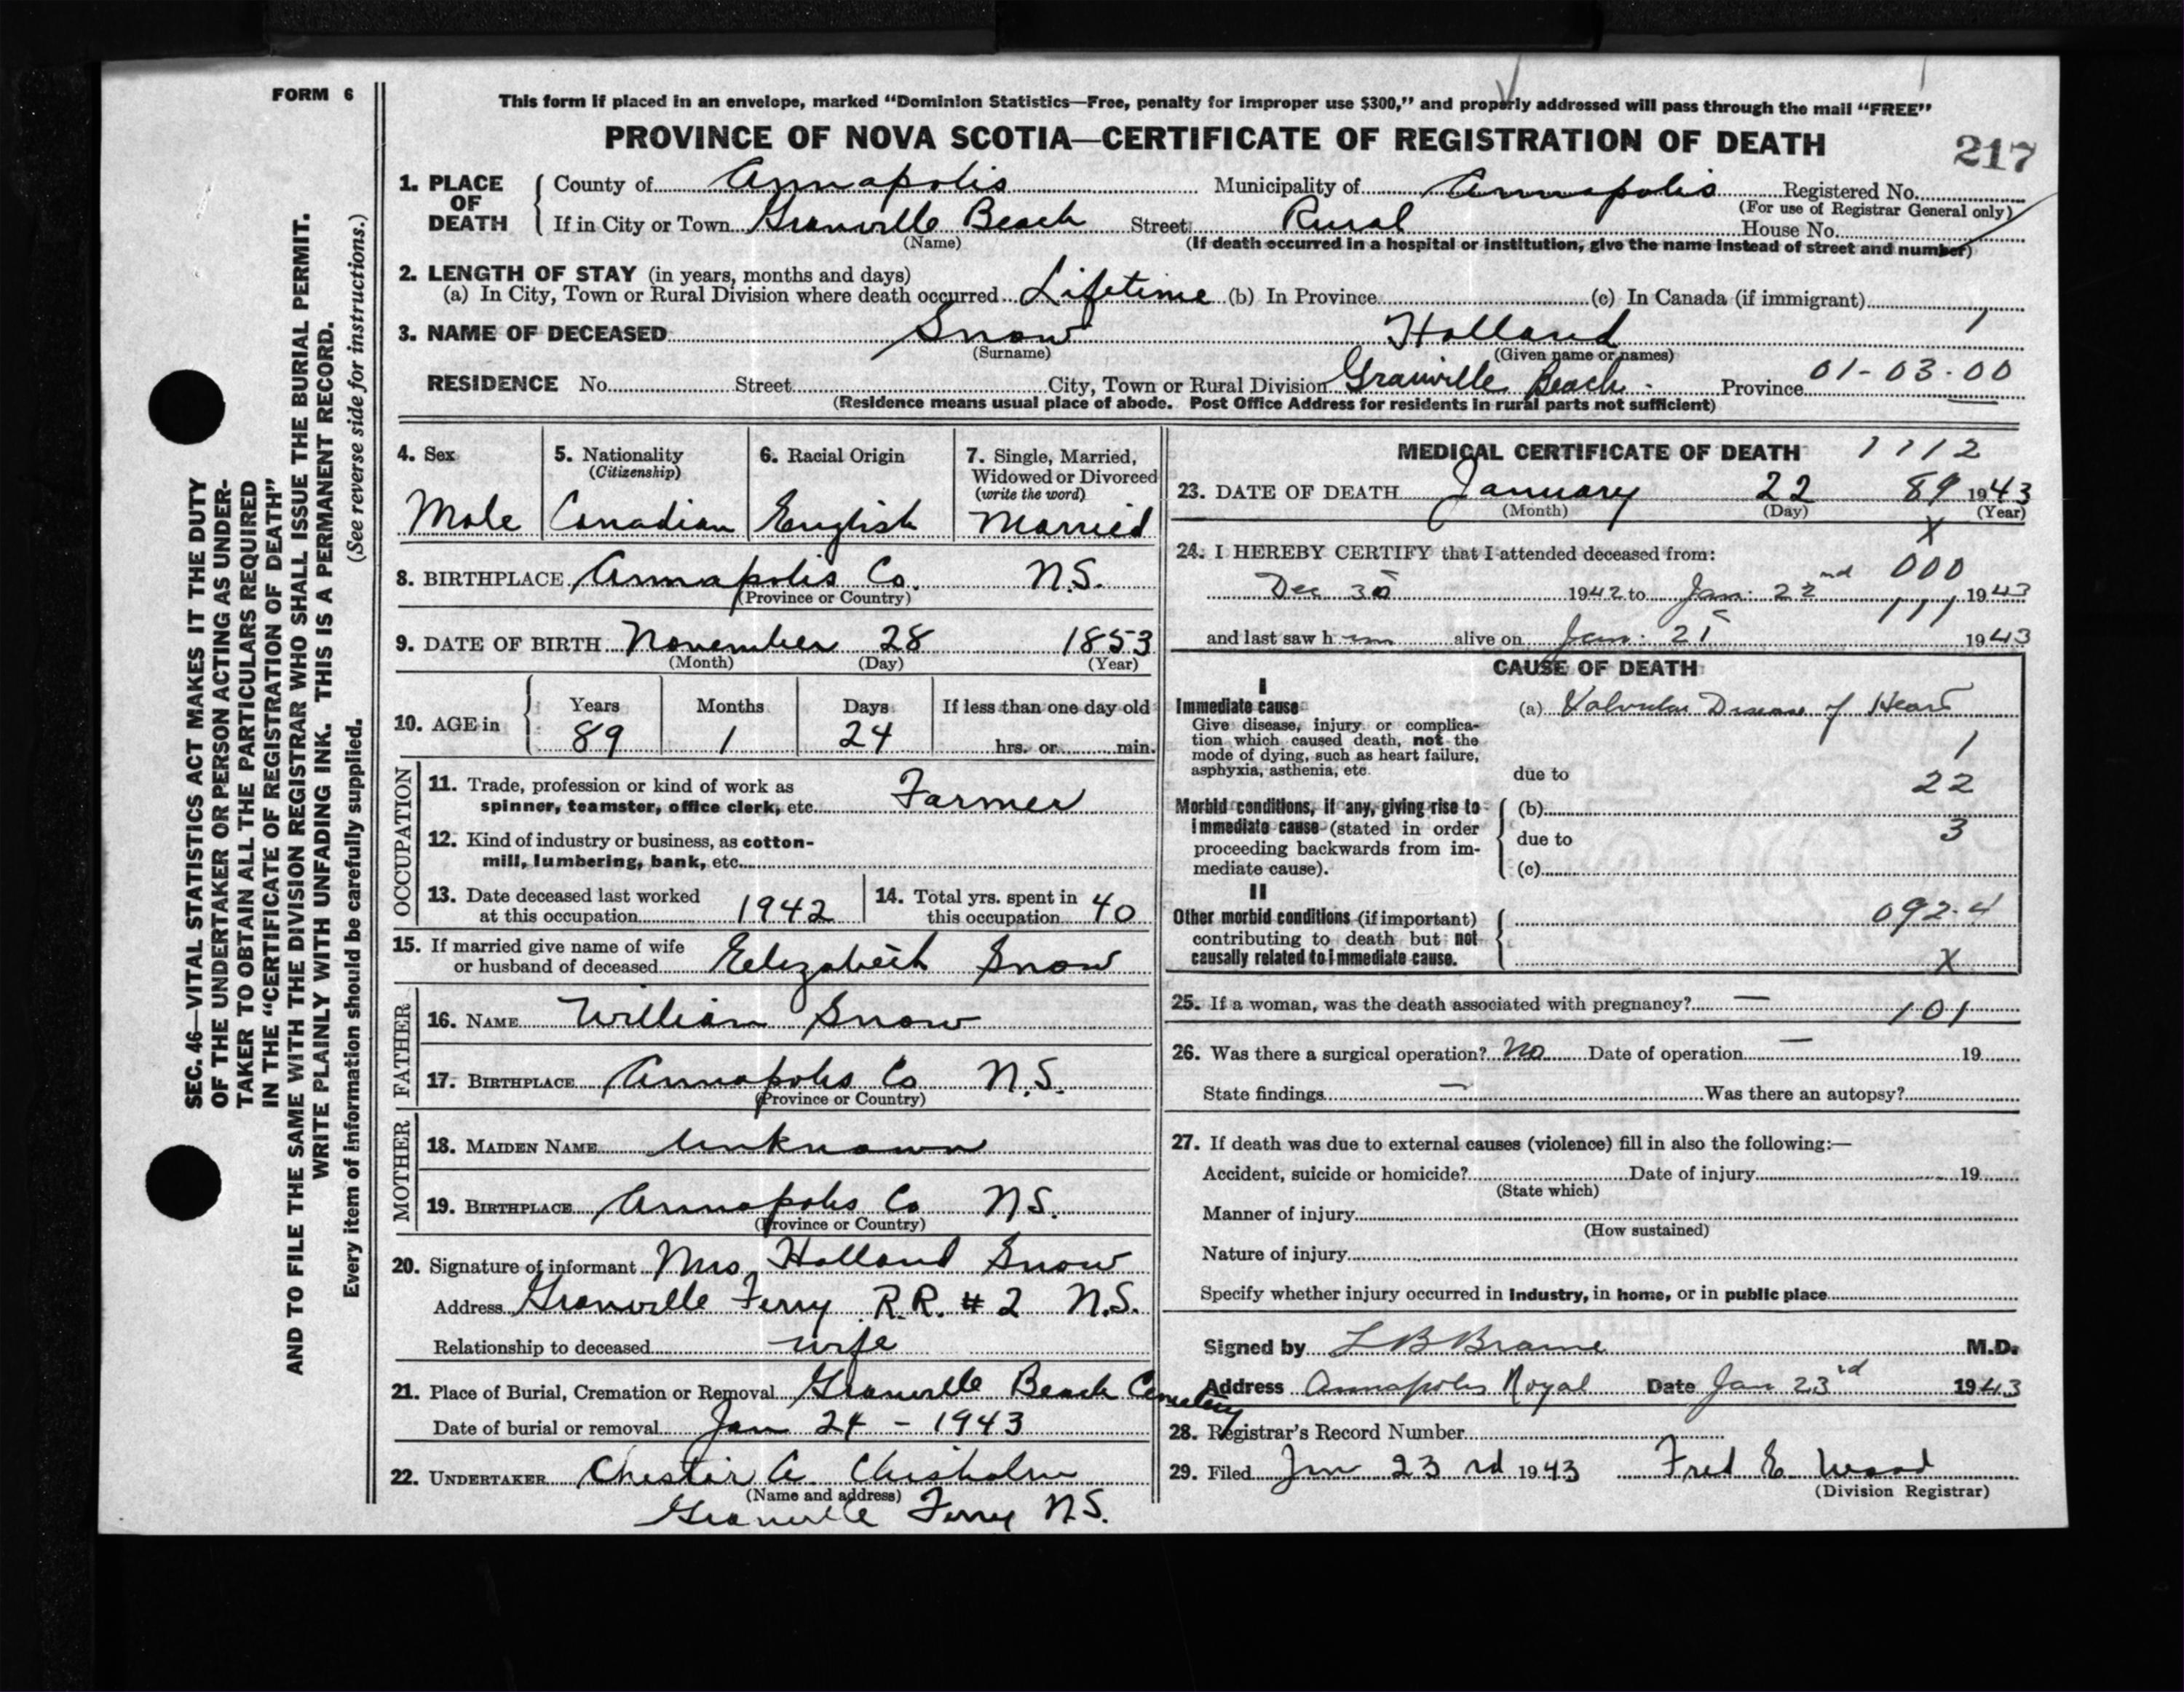 FORM 6
This form if placed in an envelope, marked “Dominion Statistics—Free, penalty for improper use $300,” and properly addressed will pass through the mail “FREE”
PROVINCE OF NOVA SCOTIA—CERTIFICATE OF REGISTRATION OF DEATH
217
1. PLACE OF DEATH County of Annapolis Municipality of Annapolis Registered No.
(For use of Registrar General only)
If in City or Town Granville Beach Street Rural House No.
(Name) (If death occurred in a hospital or institution, give the name instead of street and number)
2. LENGTH OF STAY (in years, months and days)
(a) In City, Town or Rural Division where death occurred Lifetime (b) In Province (c) In Canada (if immigrant)
3. NAME OF DECEASED Snow Holland 1
(Surname) (Given name or names)
RESIDENCE No. Street City, Town or Rural Division Granville Beach Province 01-03-00
(Residence means usual place of abode. Post Office Address for residents in rural parts not sufficient)
4. Sex 5. Nationality 6. Racial Origin 7. Single, Married,
(Citizenship) Widowed or Divorced
(write the word)
Male Canadian English Married
8. BIRTHPLACE Annapolis Co. N.S.
(Province or Country)
9. DATE OF BIRTH November 28 1853
(Month) (Day) (Year)
10. AGE in Years Months Days If less than one day old
89 1 24 hrs. or min.
OCCUPATION
11. Trade, profession or kind of work as
spinner, teamster, office clerk, etc. Farmer
12. Kind of industry or business, as cotton-
mill, lumbering, bank, etc.
13. Date deceased last worked
at this occupation 1942
14. Total yrs. spent in
this occupation 40
15. If married give name of wife
or husband of deceased Elizabeth Snow
FATHER
16. NAME William Snow
17. BIRTHPLACE Annapolis Co N.S.
(Province or Country)
MOTHER
18. MAIDEN NAME Unknown
19. BIRTHPLACE Annapolis Co N.S.
(Province or Country)
20. Signature of informant Mrs Holland Snow
Address Granville Ferry R.R. # 2 N.S.
Relationship to deceased wife
21. Place of Burial, Cremation or Removal Granville Beach Cemetery
Date of burial or removal Jan 24 - 1943
22. UNDERTAKER Chester A Chisholm
(Name and address)
Granville Ferry N.S.
MEDICAL CERTIFICATE OF DEATH 1112
23. DATE OF DEATH January 22 89 1943
(Month) (Day) (Year)
X
24. I HEREBY CERTIFY that I attended deceased from:
000
Dec 30 1942 to Jan. 22nd 1943
111
and last saw h im alive on Jan. 21 1943
CAUSE OF DEATH
I
Immediate cause (a) Valvular Disease of Heart
Give disease, injury or complica-
tion which caused death, not the
mode of dying, such as heart failure,
asphyxia, asthenia, etc.
1
due to 22
Morbid conditions, if any, giving rise to (b)
immediate cause (stated in order due to 3
proceeding backwards from im-
mediate cause). (c)
II
Other morbid conditions (if important) 092.4
contributing to death but not
causally related to immediate cause. X
25. If a woman, was the death associated with pregnancy? — 101
26. Was there a surgical operation? No Date of operation — 19
State findings — Was there an autopsy?
27. If death was due to external causes (violence) fill in also the following:—
Accident, suicide or homicide? Date of injury 19
(State which)
Manner of injury
(How sustained)
Nature of injury
Specify whether injury occurred in industry, in home, or in public place
Signed by L B Braine M.D.
Address Annapolis Royal Date Jan 23rd 1943
28. Registrar's Record Number
29. Filed Jan 23rd 1943 Fred E Wood
(Division Registrar)
SEC. 46—VITAL STATISTICS ACT MAKES IT THE DUTY
OF THE UNDERTAKER OR PERSON ACTING AS UNDER-
TAKER TO OBTAIN ALL THE PARTICULARS REQUIRED
IN THE “CERTIFICATE OF REGISTRATION OF DEATH”
AND TO FILE THE SAME WITH THE DIVISION REGISTRAR WHO SHALL ISSUE THE BURIAL PERMIT.
WRITE PLAINLY WITH UNFADING INK. THIS IS A PERMANENT RECORD.
Every item of information should be carefully supplied. (See reverse side for instructions.)